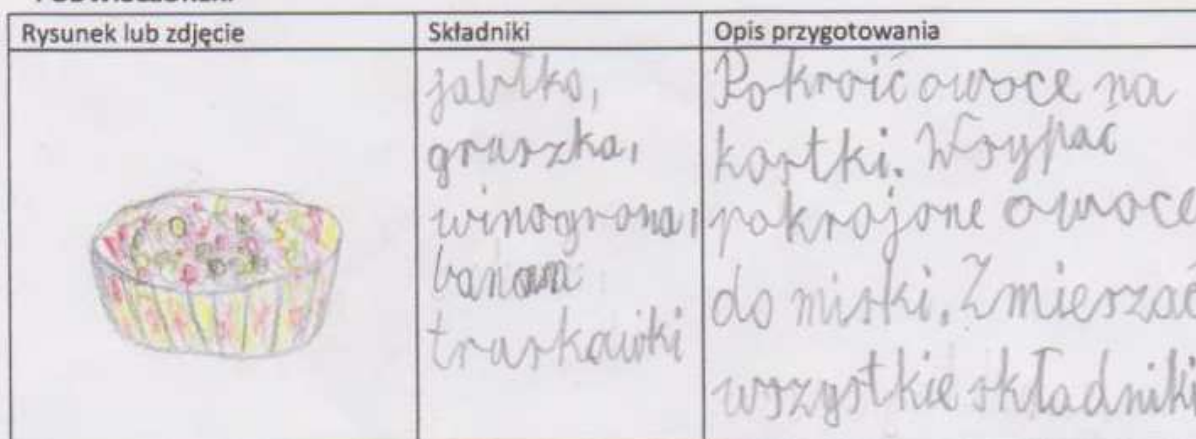 Rysunek lub zdjęcie
Składniki
Opis przygotowania
jabłko,
gruszka,
winogrona,
banan
truskawki
Pokroić owoce na
kostki. Wsypac
pokrojone owoce
do miski. Zmieszać
wszystkie składniki